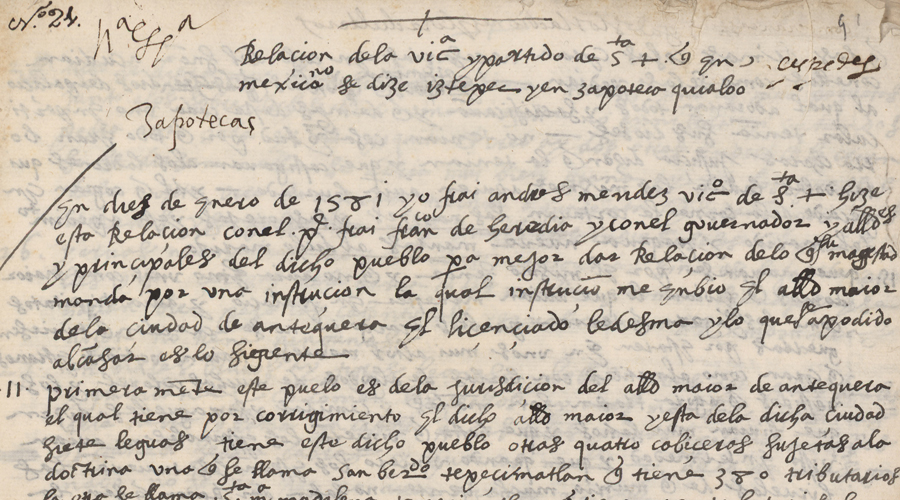 N.º 21.
Relacion dela vicᵃ y partido de Sᵗᵃ + q̃ en
mexicano se dize iztepec yen zapoteco quialoo
Zapotecas
En diez de enero de 1581 yo frai andres mendez vicº de Sᵗᵃ + hize
esta Relacion conel pᵉ frai franᶜᵒ de heredia y conel governador y allᵈᵉˢ
y principales del dicho pueblo pa mejor dar Relacion delo q̃ su magestad
manda por una instrucion la qual instrucio me enbio El allᵈᵒ maior
dela ciudad de antequera El licenciado ledesma y lo que se a podido
alcãsar es lo sigente
11 primera mẽte este puelo es dela jurisdicion del allᵈᵒ maior de antequera
el qual tiene por corrigimiento El dicho allᵈᵒ maior y esta dela dicha ciudad
siete leguas tiene este dicho pueblo otras quatro cabiceras sujetas ala
doctrina una q̃ se llama San berᵈᵒ tepecimatlan q̃ tiene 380 tributarios
se llama Sᵗᵃ mᵃ